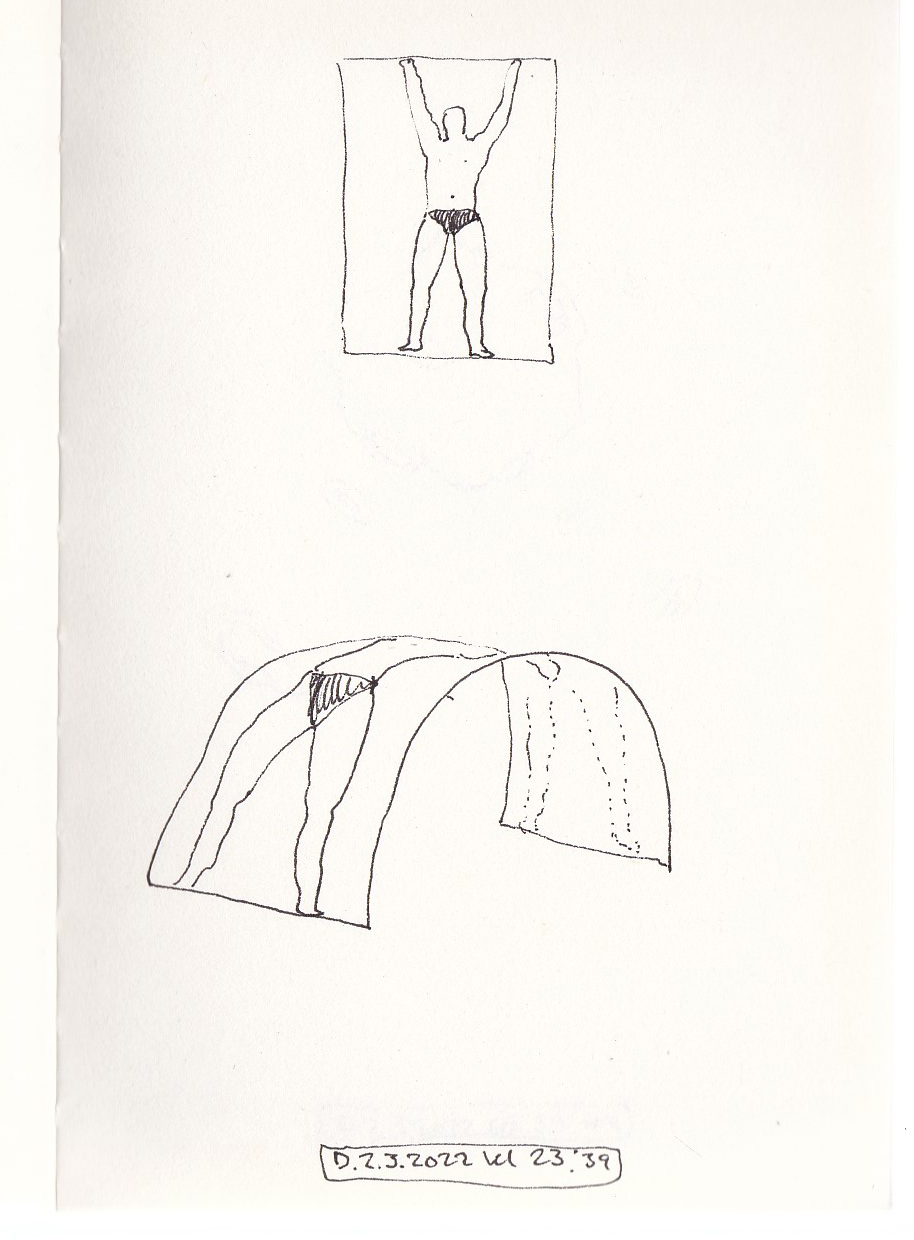 D.2.3.2022 kl 23:39